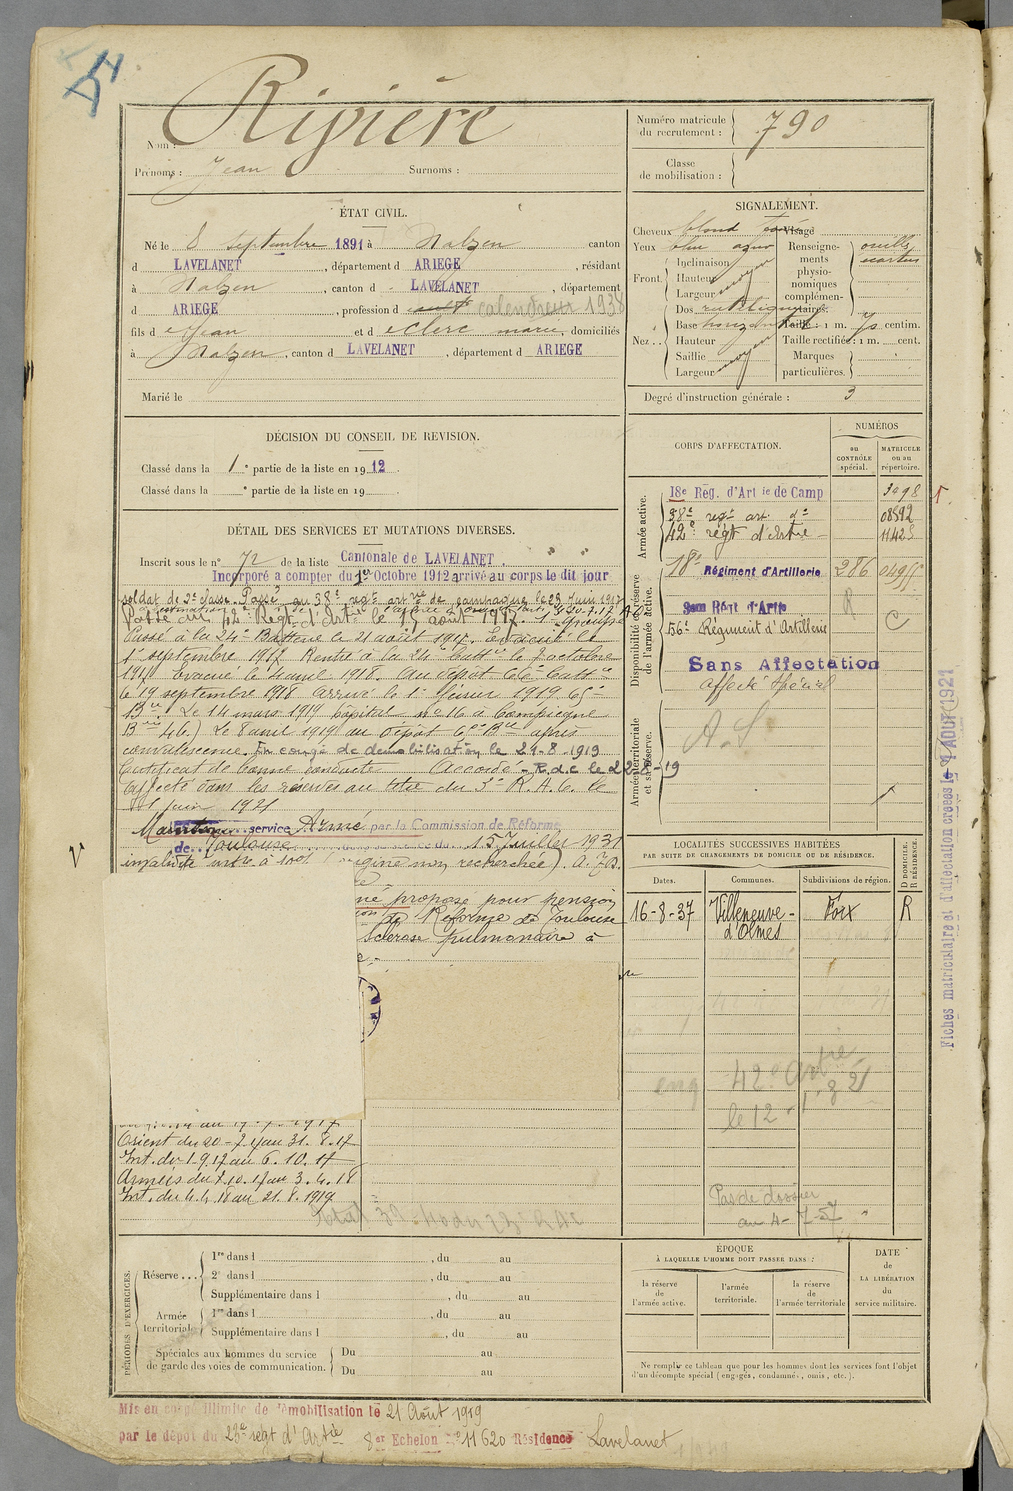 Ripière
Nom :
Prénoms : Jean Surnoms :
Numéro matricule du recrutement : 790
Classe de mobilisation :
ÉTAT CIVIL.
Né le 8 septembre 1891 à Nalzen canton
d LAVELANET, département d ARIEGE, résidant
à Nalzen, canton d LAVELANET, département
d ARIEGE, profession d cult
fils d e Jean et d e Clerc marie, domiciliés
à Nalzen, canton d LAVELANET, département d ARIEGE
Marié le
SIGNALEMENT.
Cheveux blond Visage
Yeux bleu azur Renseigne-
ments
physio-
nomiques
complémen-
taires.
Front. Inclinaison
Hauteur moyen
Largeur
Dos rectiligne
Nez .. Base horizontale Taille : 1 m. 70 centim.
Hauteur Taille rectifiée : 1 m. cent.
Saillie moyen Marques
Largeur particulières.
Degré d'instruction générale : 3
DÉCISION DU CONSEIL DE REVISION.
Classé dans la 1re partie de la liste en 1912.
Classé dans la e partie de la liste en 19
CORPS D'AFFECTATION.
NUMÉROS
au CONTRÔLE spécial.
MATRICULE ou au répertoire.
Armée active.
18e Rég. d'Art ie de Camp 3098
38e regt art. do 08592
42e régt d'Artie
Disponibilité et réserve de l'armée active.
18e Régiment d'Artillerie 286
R
3em Régt d'Artie
56e Régiment d'Artillerie C
Sans Affectation
Affecté spécial
Armée territoriale et sa réserve.
A. S
DÉTAIL DES SERVICES ET MUTATIONS DIVERSES.
Inscrit sous le n° 72 de la liste Cantonale de LAVELANET
Incorporé a compter du 1er Octobre 1912 arrivé au corps le dit jour
soldat de 2e classe. Passé au 38e regt artrie de campagne le 28 Juin 1917
Passé au 42e Regt d'Artie le 15 août 1917.
Passé à la 24e Batterie le 21 août 1917. Evacué le
1er septembre 1917 Rentré à la 24e Battie le 7 octobre
1917 Evacué le 4 avril 1918. Au dépôt 66e Batt
le 19 septembre 1918 arrivé le 1er février 1919 65e
Bie. Le 14 mars 1919 hôpital no 16 à Compiègne
Le 8 avril 1919 au dépôt 60e Bie après
convalescence. En congé de démobilisation le 21-8-1919
Certificat de bonne conduite Accordé - R.d.c le 22-8-19
Affecté dans les réserves au titre du 3e R.A.C. le
1 juin 1921
Maintenu service Armé par la Commission de Réforme
de Toulouse 15 Juillet 1931
invalidité infre à 10% (origine non recherchée).
né proposé pour pension
de Réforme de Toulouse
Sclérose pulmonaire à
Orient du 20-7-17 au 31.8.17
Int. du 1.9.17 au 6.10.17
Armées du 7.10.17 au 3.4.18
Int. du 4.4.18 au 21.8.1919
LOCALITÉS SUCCESSIVES HABITÉES
PAR SUITE DE CHANGEMENTS DE DOMICILE OU DE RÉSIDENCE.
Dates. Communes. Subdivisions de région. D DOMICILE. R RÉSIDENCE.
16-8-37 Villeneuve-d'Olmes Foix R
eng 42e Artie
le 12
Pas de dossier
au 4-7-57
PÉRIODES D'EXERCICES.
Réserve ... 1re dans l , du au
2e dans l , du au
Supplémentaire dans l , du au
Armée territoriale 1re dans l , du au
Supplémentaire dans l , du au
Spéciales aux hommes du service de garde des voies de communication. Du au
Du au
ÉPOQUE
À LAQUELLE L'HOMME DOIT PASSER DANS :
la réserve de l'armée active.
l'armée territoriale.
la réserve de l'armée territoriale
DATE de LA LIBÉRATION du service militaire.
Ne remplir ce tableau que pour les hommes dont les services font l'objet
d'un décompte spécial (engagés, condamné, omis, etc.).
Mis en congé illimité de démobilisation le 21 Août 1919
par le dépôt du 23e regt d'Artie 8e Echelon no 11620 Résidence Lavelanet
Fiches matriculaire et d'affectation créées le 1 AOUT 1921